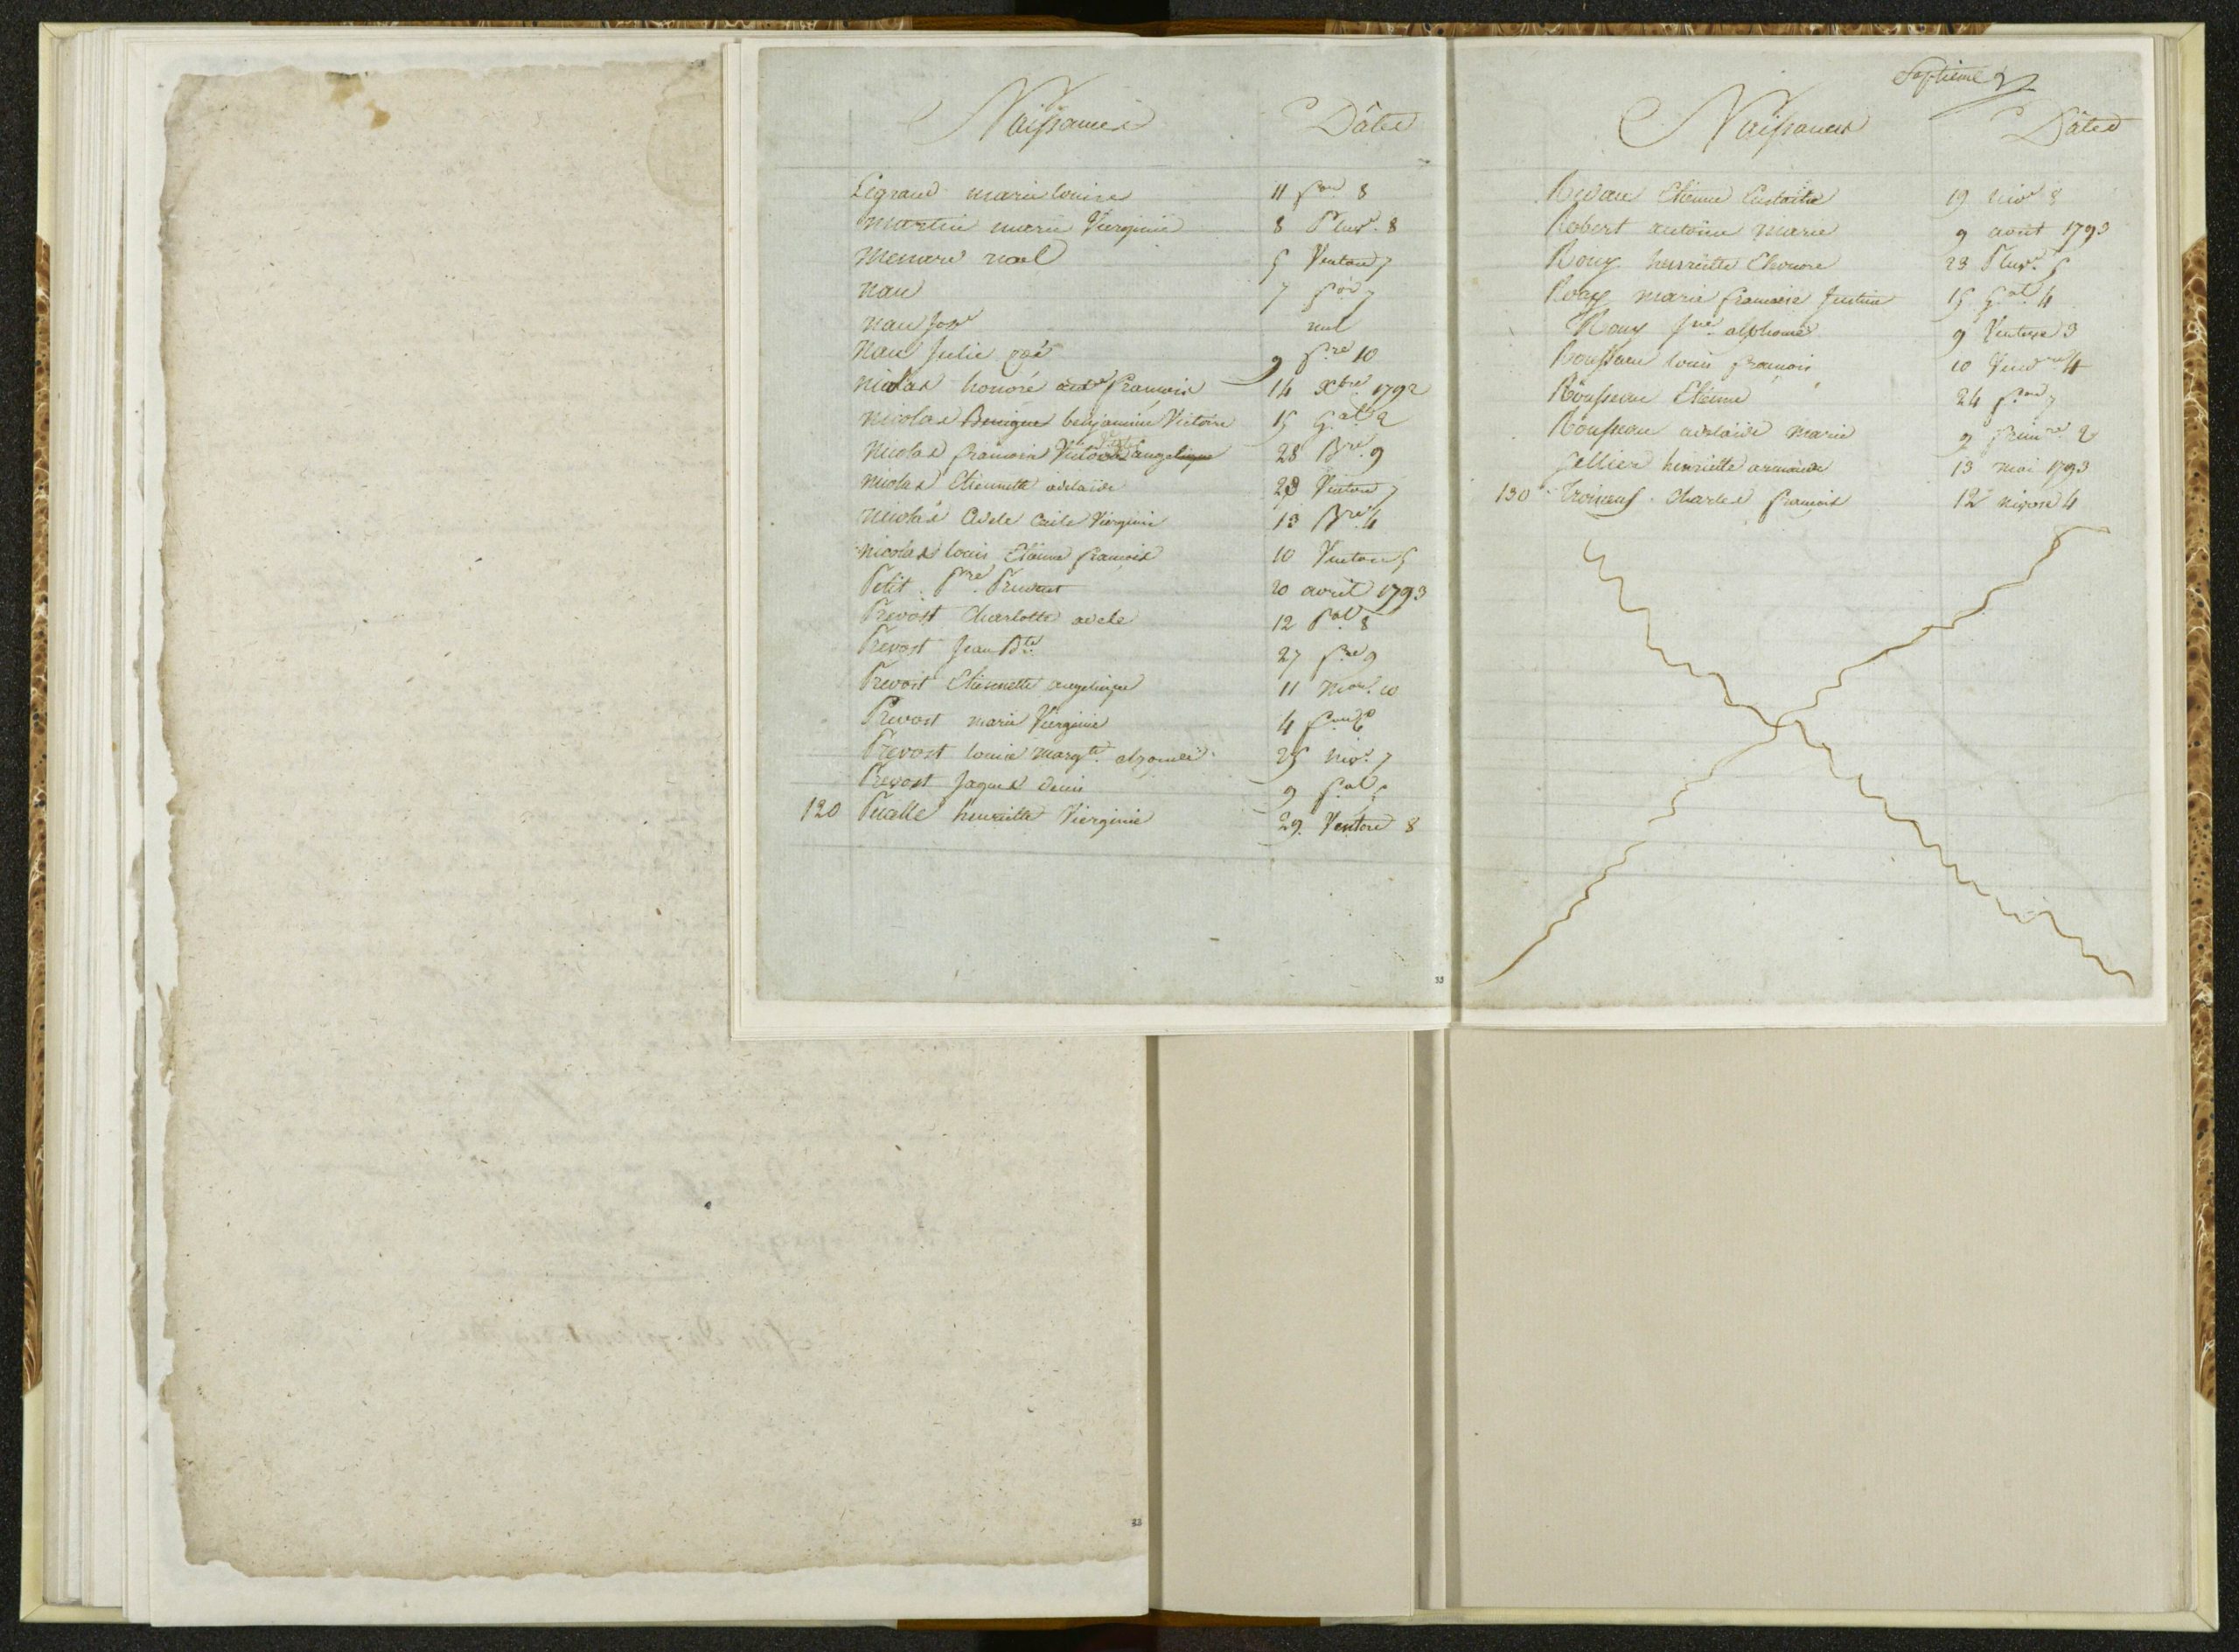 Naissances Dâtes
Legrand marie louise 11 f.or 8
Martin marie Viergine 8 Pluv.e 8
Menard noel 5 Ventose 7
Nau 7 f.or 7
Nau Jos.e nul
Nau Julie 9 f.re 10
Nicolas honoré and.e francois 14 Xbre 1792
Nicolas Benigne benjamine Victoire 15 G.al 2
Nicolas francois Victor angelique 28 B.re 9
Nicolas Etiennette adelaide 23 Ventose 7
Nicolas Adele Cecile Virginie 13 B.re 4
Nicolas louis Etienne francois 10 Ventose 5
Petit P.re Prudent 20 avril 1793
Prevost Charlotte adele 12 P.al 8
Prevost Jean B.te 27 f.re 9
Prevost Etiennette angelique 11 10
Prevost marie Vierginie 4 6
Prevost louise Marg.te 25 niv.e 7
Prevost Jaques denis 9 f.al
120 henriette Vierginie 29 Ventose 8
33
Septieme
Naissances Dâtes
Etienne 19 niv.e 8
Robert antoine Marie 9 aout 1793
Rouy henriette Eleonore 23 Pluv.e 5
Rouy marie francoise Justine 15 G.al 4
Rouy alphonse 9 Ventose 3
Rousseau louis francois 10 Vend.re 4
Rousseau Etienne 24 7
Rousseau adelaide marie 2 frim.re 2
Tellier henriette armande 13 mai 1793
130 Troineuf Charles francois 12 nivose 4
33